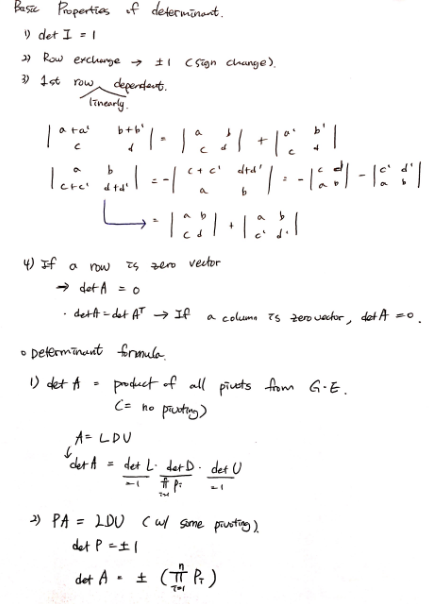 Basic Properties of determinant.
1) det I = 1
2) Row exchange → ±1 (sign change).
3) 1st row dependent.
linearly.
| a+a' b+b' ; c d | = | a b ; c d | + | a' b' ; c d |
| a b ; c+c' d+d' | = -| c+c' d+d' ; a b | = -| c d ; a b | - | c' d' ; a b |
= | a b ; c d | + | a b ; c' d' |
4) If a row is zero vector
→ det A = 0
· det A = det Aᵀ → If a column is zero vector, det A = 0.
◦ Determinant formula.
1) det A = product of all pivots from G.E.
(= no pivoting)
A = LDU
det A = det L · det D · det U
=1 ∏ᵢ₌₁ⁿ Pᵢ =1
2) PA = LDU (w/ some pivoting)
det P = ±1
det A = ± (∏ᵢ₌₁ⁿ Pᵢ)